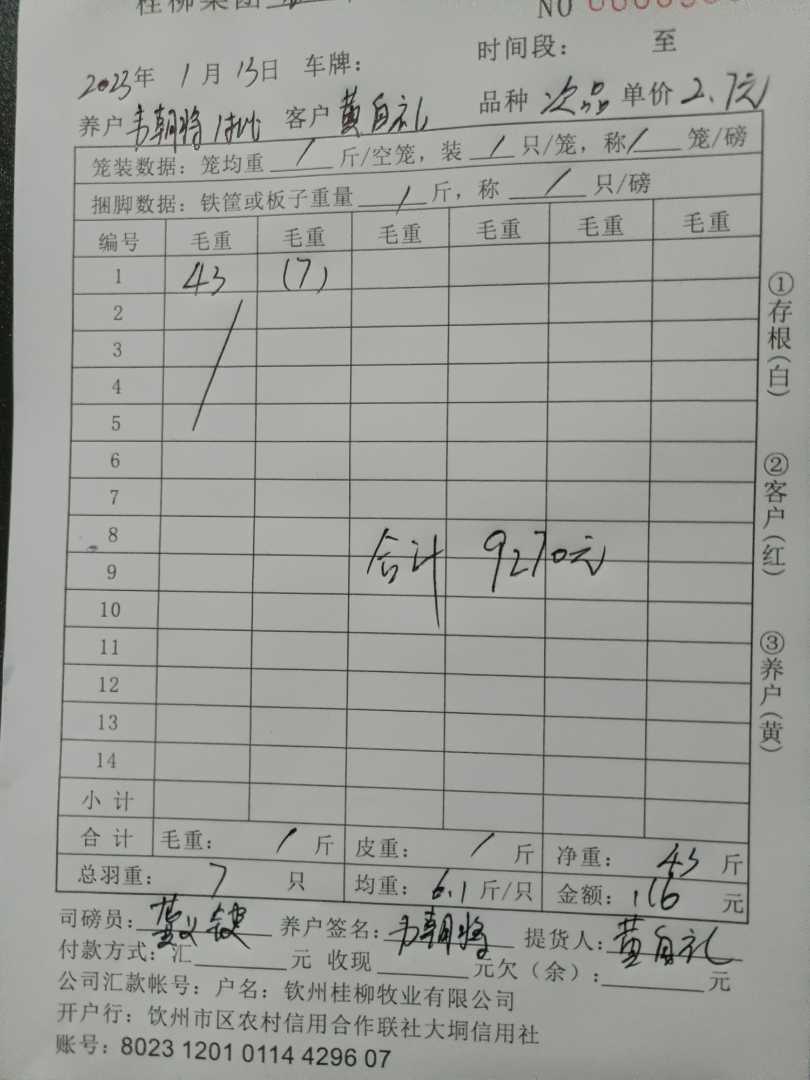 桂柳集团
NO
时间段： 至
2023年 1月13日 车牌：
养户韦朝将 客户黄自礼 品种 次品 单价2.7元
笼装数据：笼均重 / 斤/空笼，装 / 只/笼，称 / 笼/磅
捆脚数据：铁筐或板子重量 / 斤，称 / 只/磅
编号 毛重 毛重 毛重 毛重 毛重 毛重
1 43 (7)
2
3
4
5
6
7
8
9
合计 9270元
10
11
12
13
14
小计
合计 毛重： / 斤 皮重： / 斤 净重： 43 斤
总羽重： 7 只 均重： 6.1 斤/只 金额： 116 元
司磅员： 养户签名：韦朝将 提货人：黄自礼
付款方式：汇 元 收现 元欠（余）： 元
公司汇款帐号：户名：钦州桂柳牧业有限公司
开户行：钦州市区农村信用合作联社大垌信用社
账号：8023 1201 0114 4296 07
①存根(白)
②客户(红)
③养户(黄)